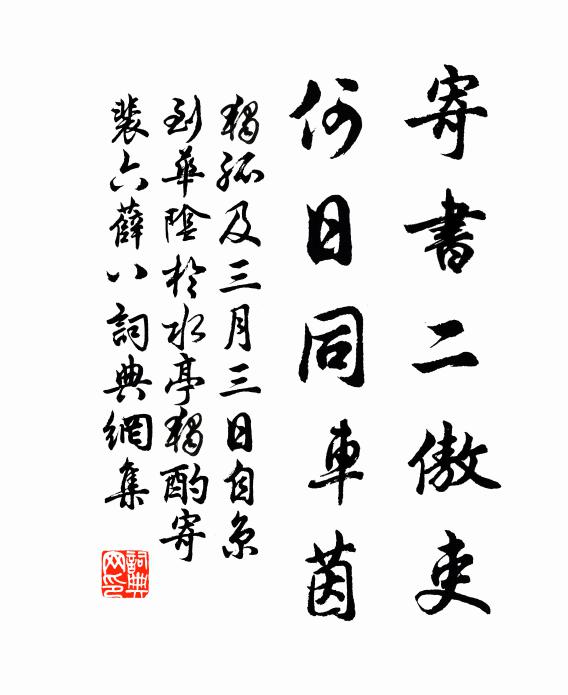 寄書二傲吏
何日同車茵
獨孤及三月三日自京
到華陰於水亭獨酌寄
裴六薛八詞典網集
詞典
网印